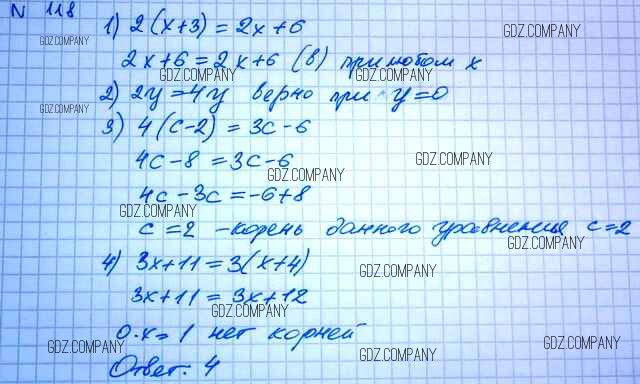 N 118
1) 2(x+3) = 2x+6
GDZ.COMPANY GDZ.COMPANY
2x+6 = 2x+6 (в) при любом x
GDZ.COMPANY GDZ.COMPANY
2) 2y=4y верно при y=0
GDZ.COMPANY
3) 4(c-2) = 3c-6
4c-8 = 3c-6
GDZ.COMPANY GDZ.COMPANY
4c-3c = -6+8
GDZ.COMPANY
c=2 - корень данного уравнения c=2
GDZ.COMPANY
4) 3x+11 = 3(x+4)
GDZ.COMPANY
3x+11 = 3x+12
GDZ.COMPANY
0·x= 1 нет корней
GDZ.COMPANY GDZ.COMPANY GDZ.COMPANY
Ответ: 4